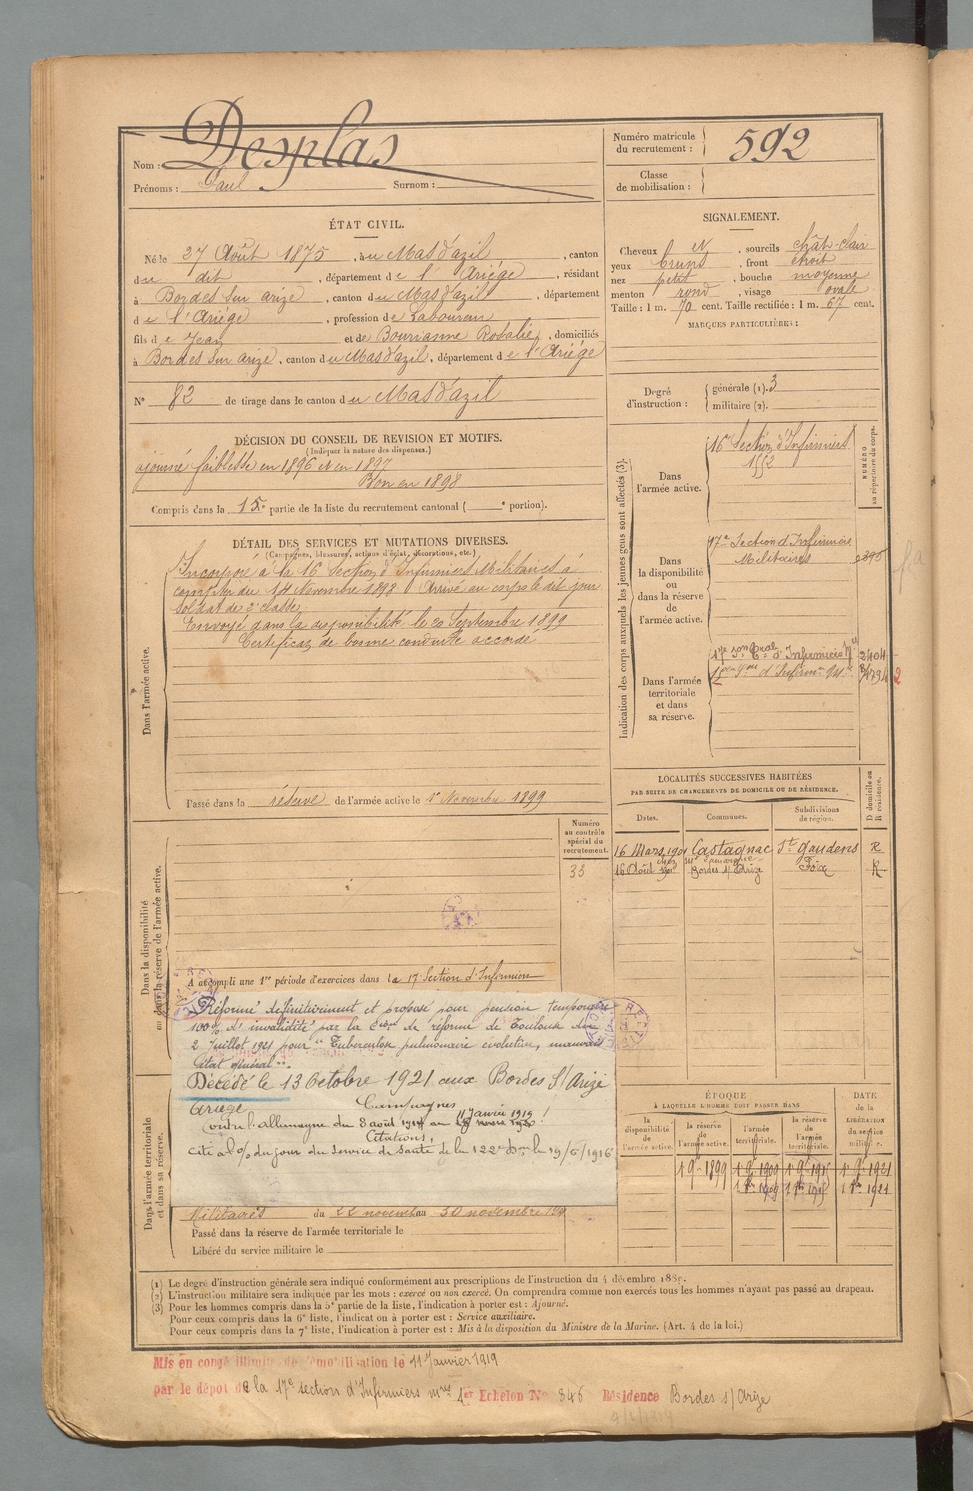 Nom : Desplas
Prénoms : Paul Surnom :
Numéro matricule du recrutement : 592
Classe de mobilisation :
ÉTAT CIVIL.
Né le 27 Août 1875, à u Mas d'azil, canton
d u dit, département d e l'Ariège, résidant
à Bordes sur arize, canton d u Mas d'azil, département
d e l'Ariège, profession d e Laboureur
fils d e Jean et de Bourianne Rosalie, domiciliés
à Bordes sur arize, canton d u Mas d'azil, département d e l'Ariège
N° 82 de tirage dans le canton d u Mas d'azil
SIGNALEMENT.
Cheveux et, sourcils chât-clair
yeux bruns, front étroit
nez petit, bouche moyenne
menton rond, visage ovale
Taille : 1 m. 70 cent. Taille rectifiée : 1 m. 67 cent.
MARQUES PARTICULIÈRES :
Degré d'instruction : générale (1). 3
militaire (2).
DÉCISION DU CONSEIL DE REVISION ET MOTIFS.
(Indiquer la nature des dispenses.)
ajourné faiblesse en 1896 et en 1897
Bon en 1898
Compris dans la 15e partie de la liste du recrutement cantonal ( e portion).
DÉTAIL DES SERVICES ET MUTATIONS DIVERSES.
(Campagnes, blessures, actions d'éclat, décorations, etc.)
Dans l'armée active.
Incorporé à la 16e Section d'Infirmiers Militaires à
compter du 14 Novembre 1898 Arrivé au corps le dit jour
Soldat de 2e classe
Envoyé dans la disponibilité le 20 Septembre 1899
Certificat de bonne conduite accordé
Passé dans la réserve de l'armée active le 1er Novembre 1899
Indication des corps auxquels les jeunes gens sont affectés (3).
NUMÉRO au répertoire du corps.
Dans l'armée active.
16e Section d'Infirmiers
1552
Dans la disponibilité ou dans la réserve de l'armée active.
17e Section d'Infirmiers
Militaires
Dans l'armée territoriale et dans sa réserve.
2404
2
LOCALITÉS SUCCESSIVES HABITÉES
PAR SUITE DE CHANGEMENTS DE DOMICILE OU DE RÉSIDENCE.
Dates. Communes. Subdivisions de région. D domicile ou R résidence.
16 Mars 1901 Castagnac St gaudens R
16 Août Bordes s/ Arize Foix R
Dans la disponibilité ou dans la réserve de l'armée active.
Numéro au contrôle spécial du recrutement.
33
A accompli une 1re période d'exercices dans la 17e Section d'Infirmiers
Réformé définitivement et proposé pour pension temporaire
100% d'invalidité par la Cion de réforme de Toulouse du
2 Juillet 1921 pour "Tuberculose pulmonaire évolutive, mauvais
état général".
Décédé le 13 Octobre 1921 aux Bordes S/ Arize
Ariège
Campagnes
contre l'allemagne du 3 août 1914 au 11 Janvier 1919
Citations.
cité à l'o/ du jour du Service de Santé de la 122e Don le 19/6/1916
Dans l'armée territoriale et dans sa réserve.
Militaires du 22 novemb au 30 novembre
Passé dans la réserve de l'armée territoriale le
Libéré du service militaire le
ÉPOQUE
À LAQUELLE L'HOMME DOIT PASSER DANS
DATE de la LIBÉRATION du service militaire.
la disponibilité de l'armée active. la réserve de l'armée active. l'armée territoriale. la réserve de l'armée territoriale.
1 9bre 1899 1 9bre 1909 1 9bre 1915 1 9bre 1921
(1) Le degré d'instruction générale sera indiqué conformément aux prescriptions de l'instruction du 4 décembre 1889.
(2) L'instruction militaire sera indiquée par les mots : exercé ou non exercé. On comprendra comme non exercés tous les hommes n'ayant pas passé au drapeau.
(3) Pour les hommes compris dans la 5e partie de la liste, l'indication à porter est : Ajourné.
Pour ceux compris dans la 6e liste, l'indication à porter est : Service auxiliaire.
Pour ceux compris dans la 7e liste, l'indication à porter est : Mis à la disposition du Ministre de la Marine. (Art. 4 de la loi.)
Mis en congé illimité de démobilisation le 11 Janvier 1919
par le dépôt de la 17e section d'Infirmiers mres 1er Echelon N° 346 Résidence Bordes s/ Arize